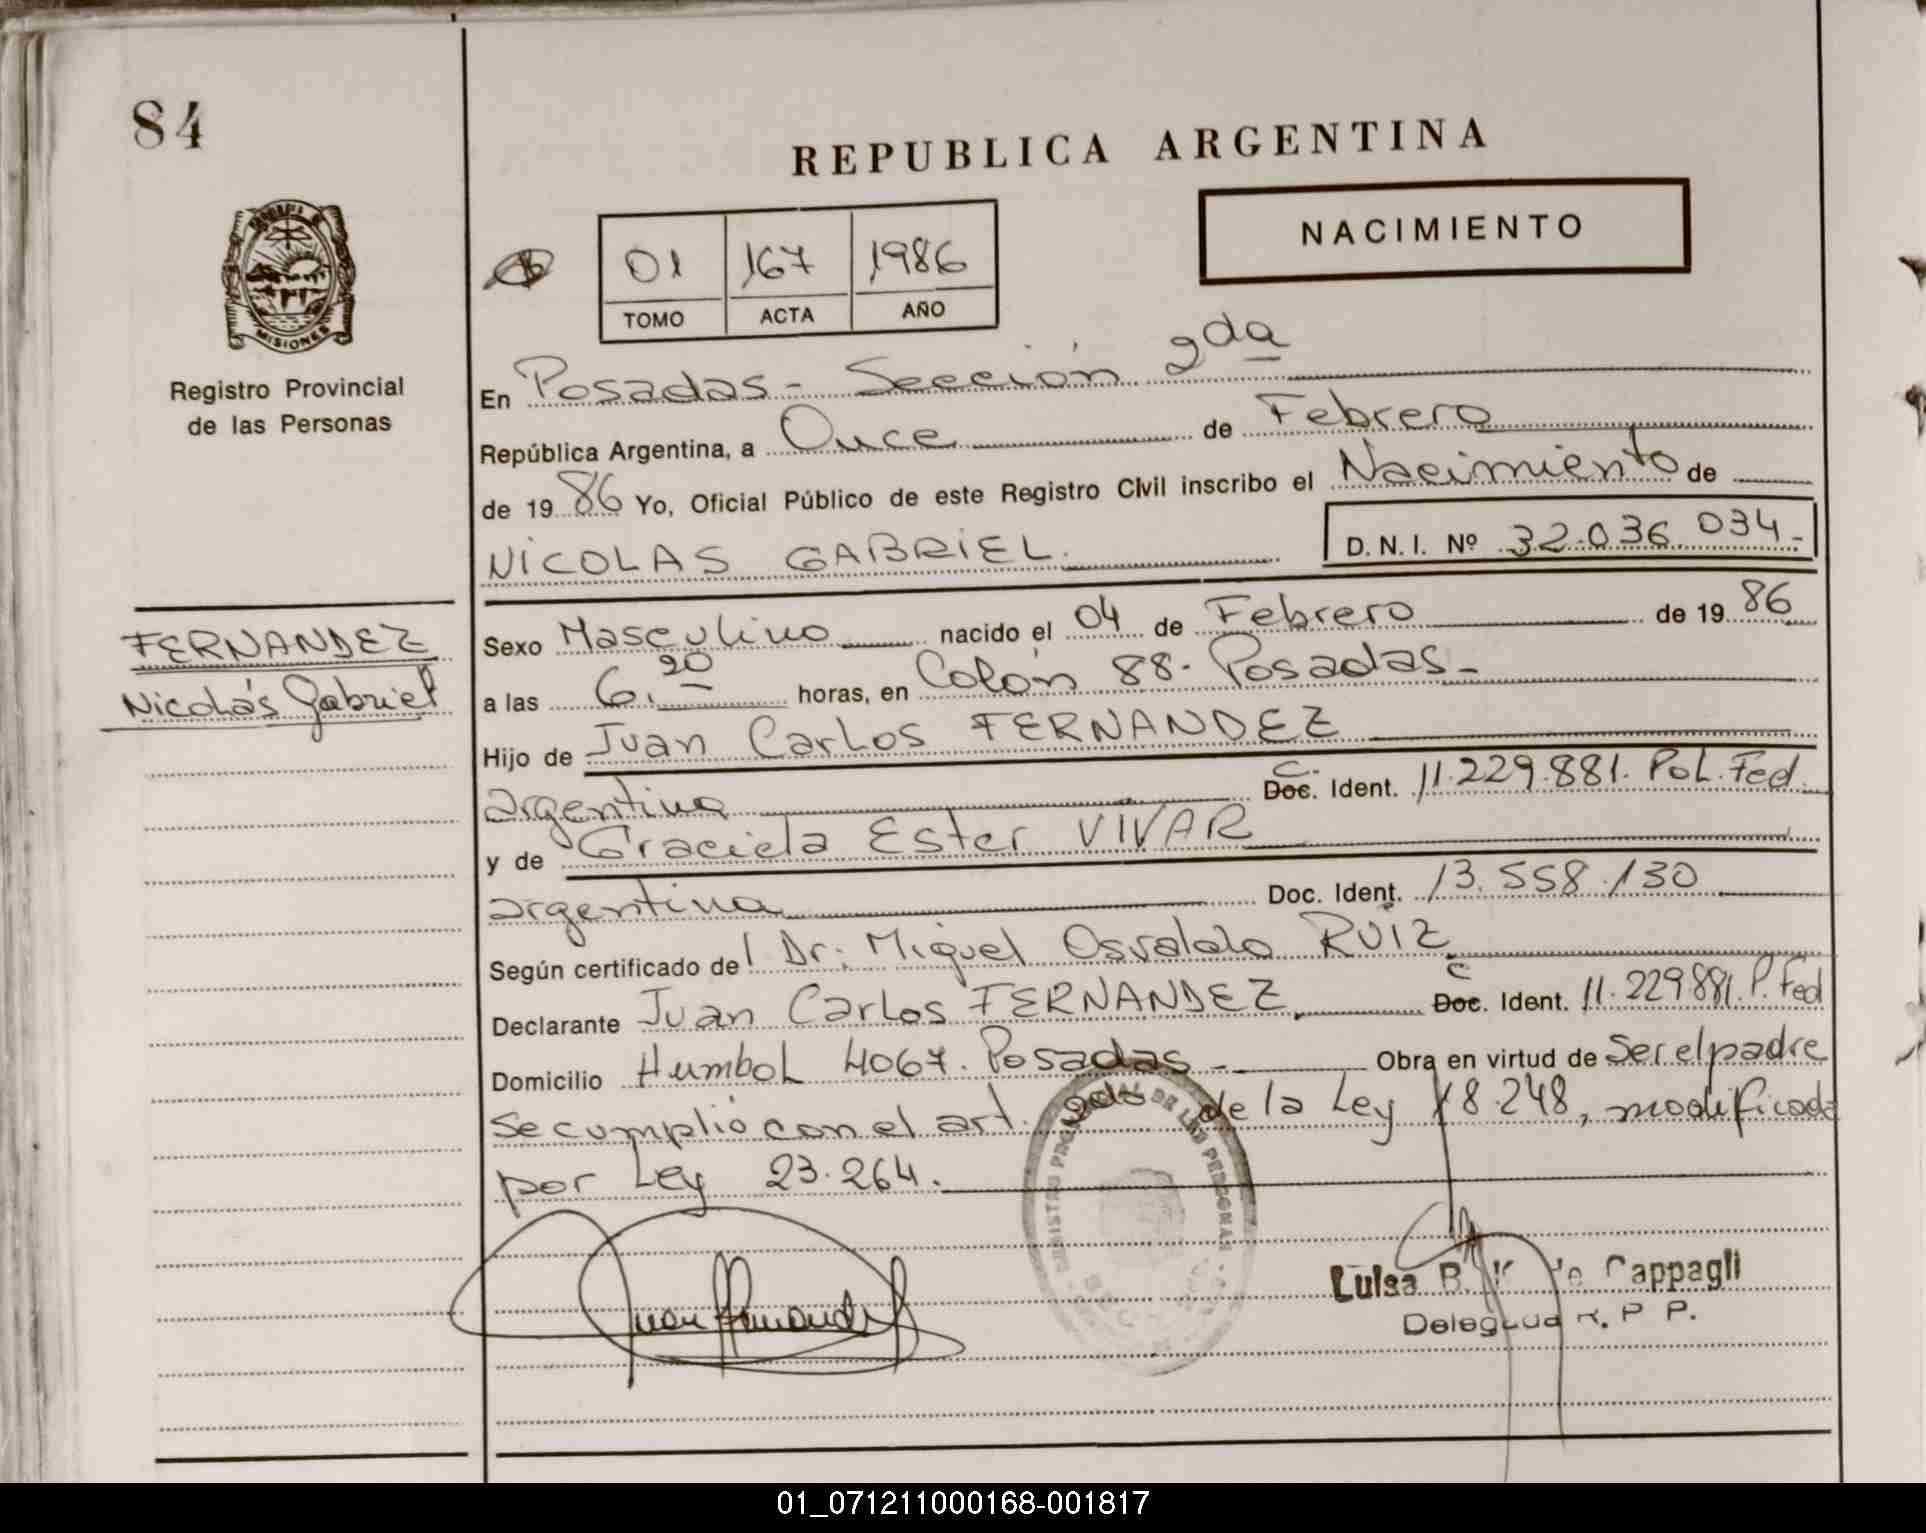 84
REPUBLICA ARGENTINA
NACIMIENTO
01 167 1986
TOMO ACTA AÑO
MISIONES
Registro Provincial
de las Personas
En Posadas - Sección 2da
República Argentina, a Once de Febrero
de 19 86 Yo, Oficial Público de este Registro Civil inscribo el Nacimiento de
NICOLAS GABRIEL. D. N. I. Nº 32.036.034.-
FERNANDEZ
Nicolás Gabriel
Sexo Masculino nacido el 04 de Febrero de 19 86
a las 6.20 horas, en Colón 88. Posadas.-
Hijo de Juan Carlos FERNANDEZ
argentina C. Doc. Ident. 11.229.881. Pol. Fed.
y de Graciela Ester VIVAR
argentina Doc. Ident. 13.558.130
Según certificado del Dr. Miguel Osvaldo RUIZ
Declarante Juan Carlos FERNANDEZ, C Doc. Ident. 11.229881. P. Fed
Domicilio Humbol 4067. Posadas.- Obra en virtud de Ser el padre
se cumplió con el art. 2do de la Ley 18.248, modificada
por Ley 23.264.
REGISTRO DE LAS PERSONAS
Juan Fernandez
Luisa B. de Cappagli
Delegada R. P. P.
01_071211000168-001817